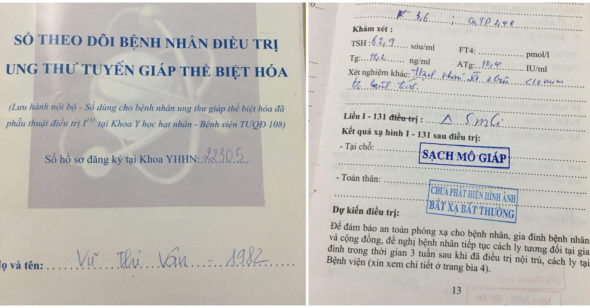 SỔ THEO DÕI BỆNH NHÂN ĐIỀU TRỊ
UNG THƯ TUYẾN GIÁP THỂ BIỆT HÓA
(Lưu hành nội bộ - Sổ dùng cho bệnh nhân ung thư giáp thể biệt hóa đã
phẫu thuật điều trị I131 tại Khoa Y học hạt nhân - Bệnh viện TƯQĐ 108)
Số hồ sơ đăng ký tại Khoa YHHN: 22305
Họ và tên: Vũ Thị Vân - 1982
Khám xét :
TSH: 62,9 miu/ml FT4: pmol/l
Tg: ng/ml ATg: 10,4 IU/ml
Xét nghiệm khác:
Liều I - 131 điều trị: 5mCi
Kết quả xạ hình I - 131 sau điều trị:
- Tại chỗ:
SẠCH MÔ GIÁP
- Toàn thân:
CHƯA PHÁT HIỆN HÌNH ẢNH
BẮT XẠ BẤT THƯỜNG
Dự kiến điều trị:
Để đảm bảo an toàn phóng xạ cho bệnh nhân, gia đình bệnh nhân
và cộng đồng, đề nghị bệnh nhân tiếp tục cách ly tương đối tại gia
đình trong thời gian 3 tuần sau khi đã điều trị nội trú, cách ly tại
Bệnh viện (xin xem chi tiết ở trang bìa 4).
13